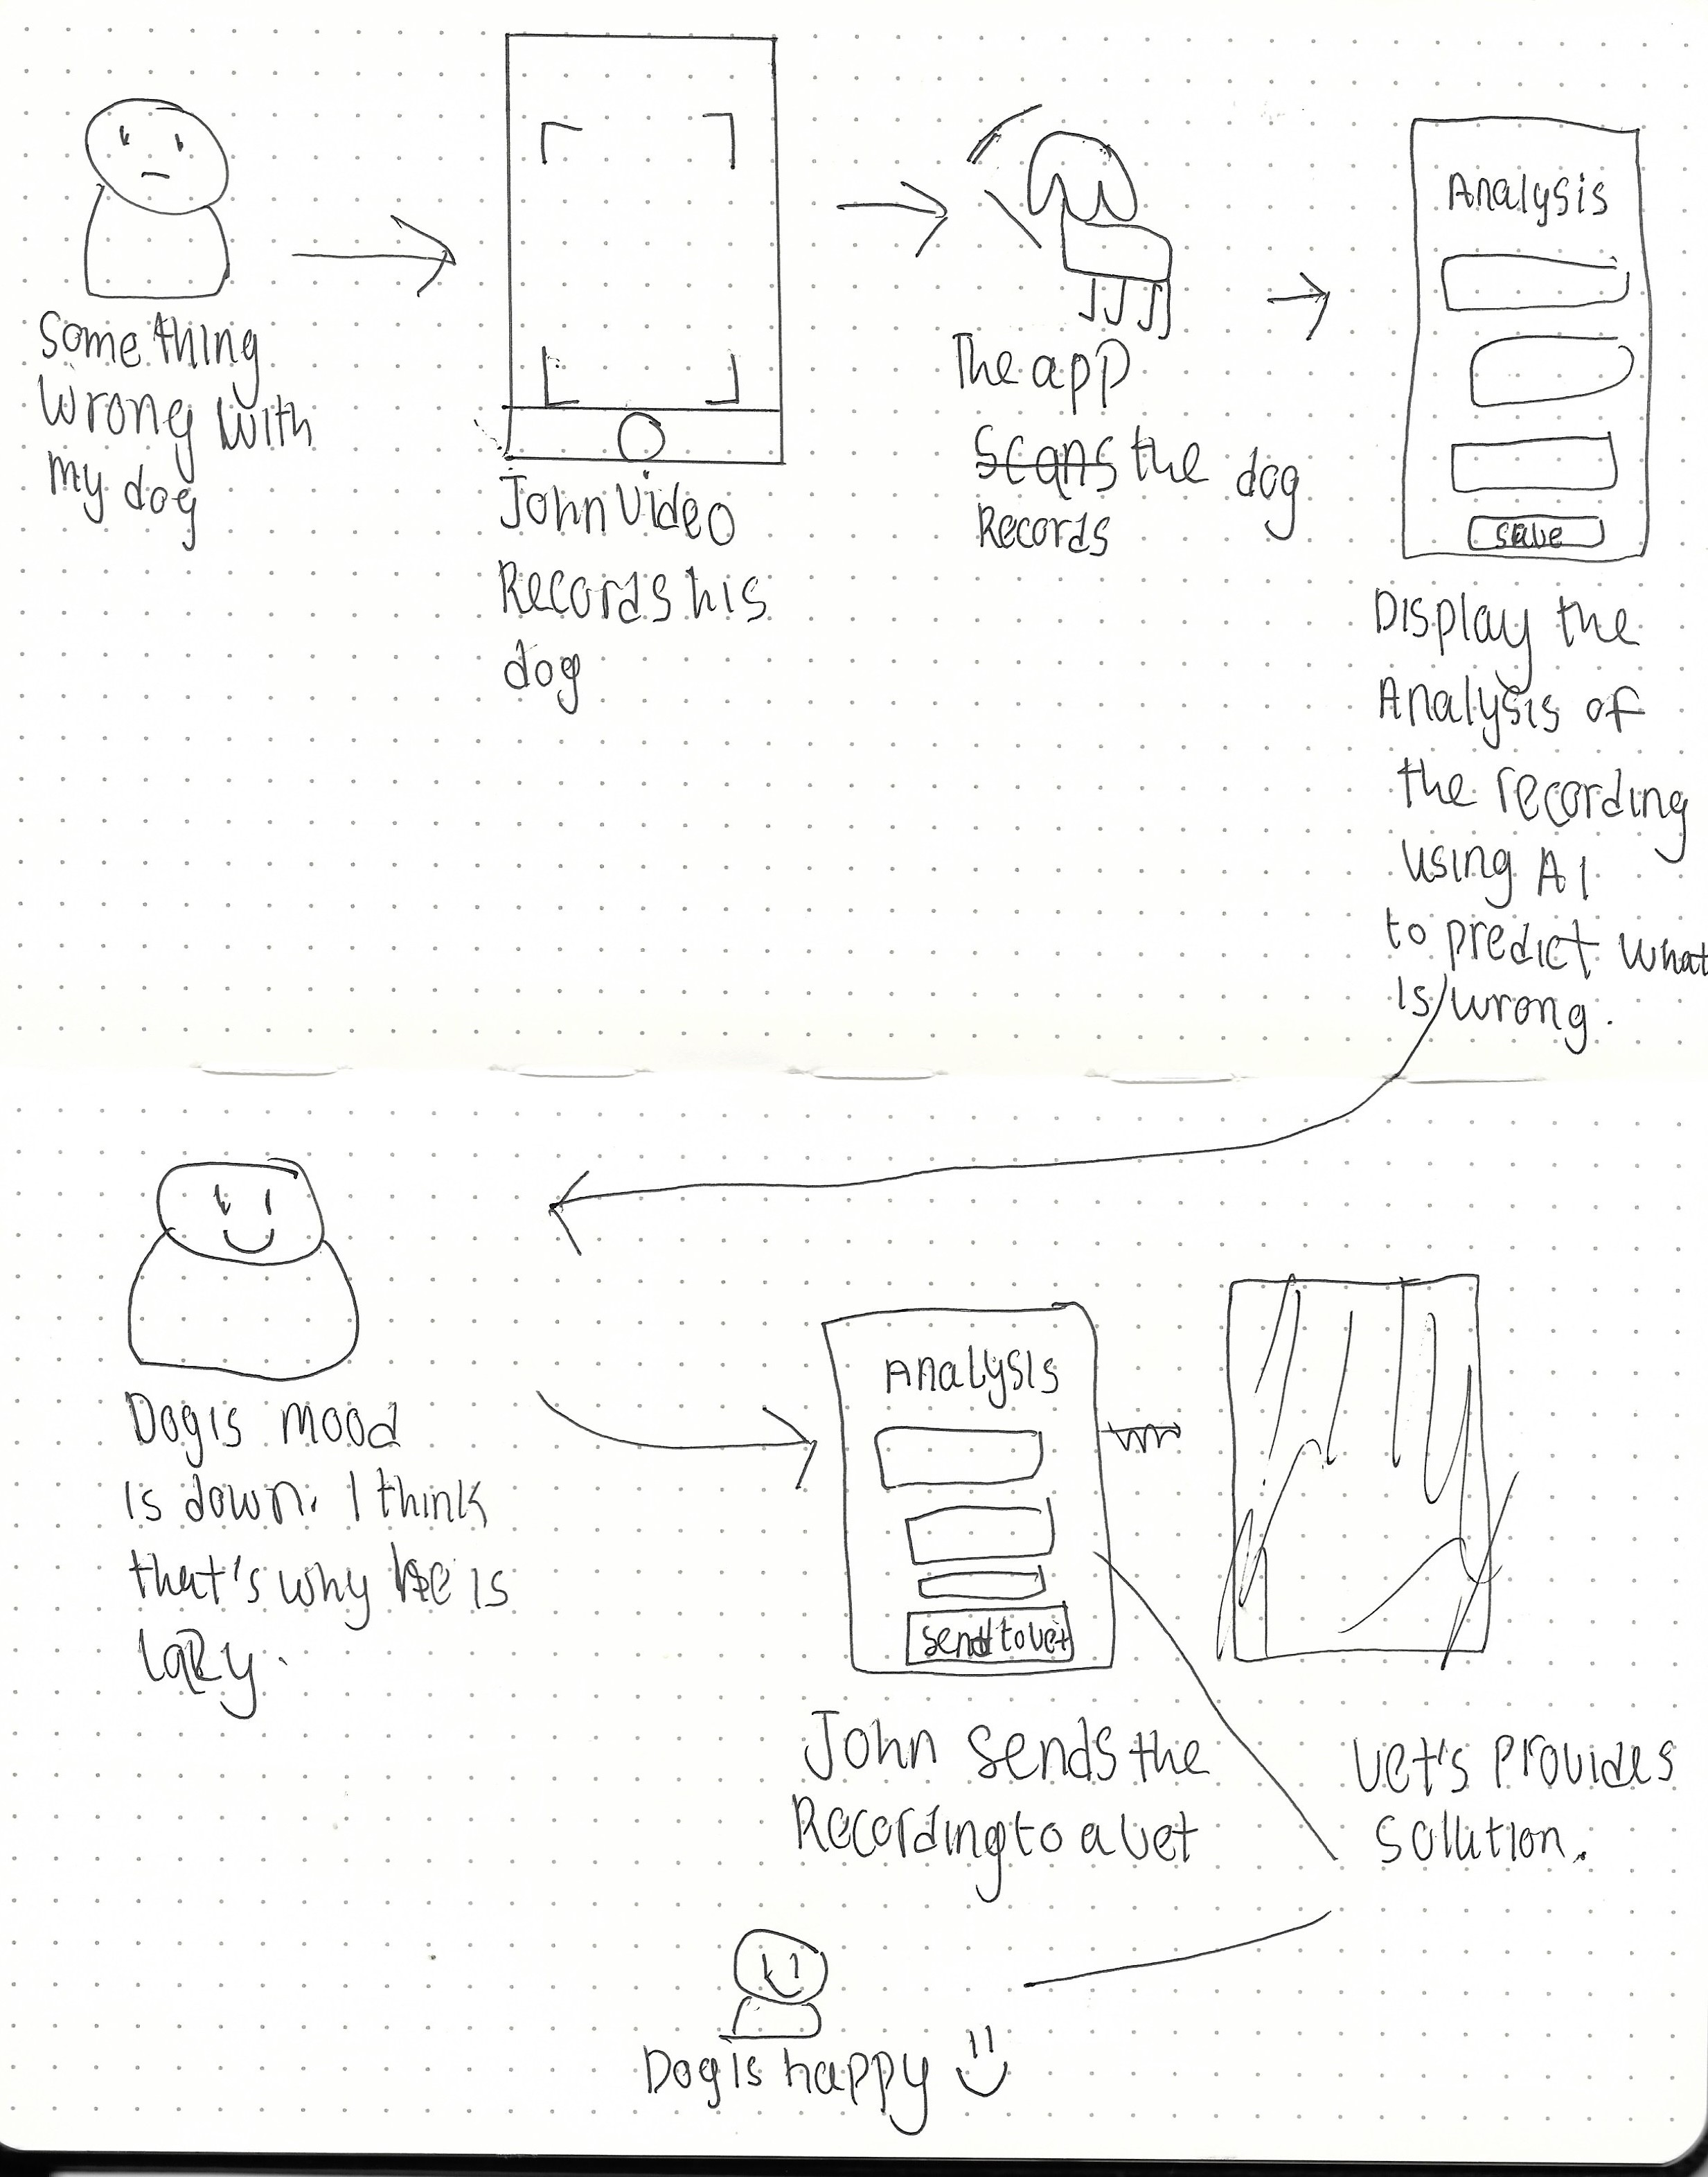 Something
wrong with
my dog
John Video
Records his
dog
The app
Scans the dog
Records
Analysis
save
Display the
Analysis of
the recording
using AI
to predict what
is wrong.
Dog is mood
is down. I think
that's why he is
lazy.
Analysis
send to vet
John sends the
Recording to a vet
Vet's Provides
solution.
Dog is happy